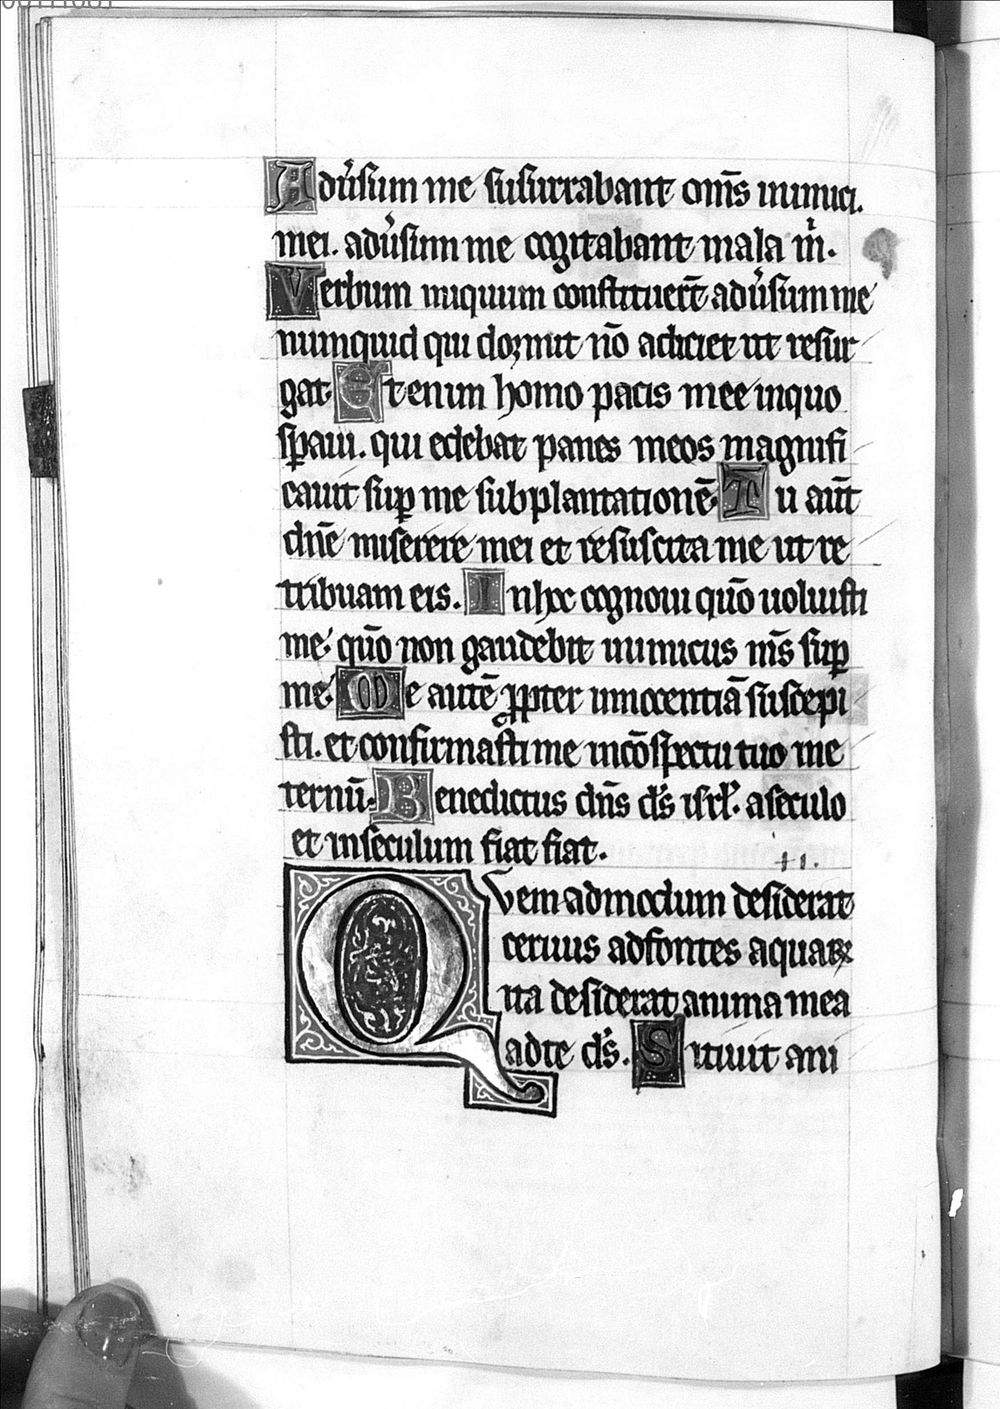 Adu̾sum me susurrabant om̅s inimici.
mei. adu̾sum me cogitabant mala m̍.
Verbum iniquum constituer̅t adu̾sum me
numquid qui dormit no̅ adiciet ut resur
gat. Etenim homo pacis mee inquo
sꝑaui. qui edebat panes meos magnifi
cauit suꝑ me subplantatione̅. Tu aut̅
dn̅e miserere mei et resuscita me ut re
tribuam eis. In hoc cognoui quo̅ uoluisti
me. quo̅ non gaudebit inimicus m̅s suꝑ
me. Me aute̅ ꝓpter innocentia̅ suscepi
sti. et confirmasti me inco̅spectu tuo ine
ternu̅. Benedictus dn̅s ds̅ isrl̅. aseculo
et inseculum fiat fiat.
41.
Quemadmodum desiderat
ceruus adfontes aquaꝝ
ita desiderat anima mea
adte ds̅. Sitiuit ani